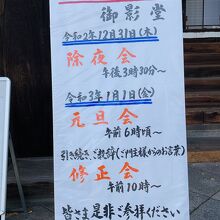 御影堂
令和2年12月31日(木)
除夜会
午後3時30分～
令和3年1月1日(金)
元旦会
午前6時頃～
引き続き、ご親諭(ご門主様からのお言葉)
修正会
午前10時～
皆さま是非ご参拝ください